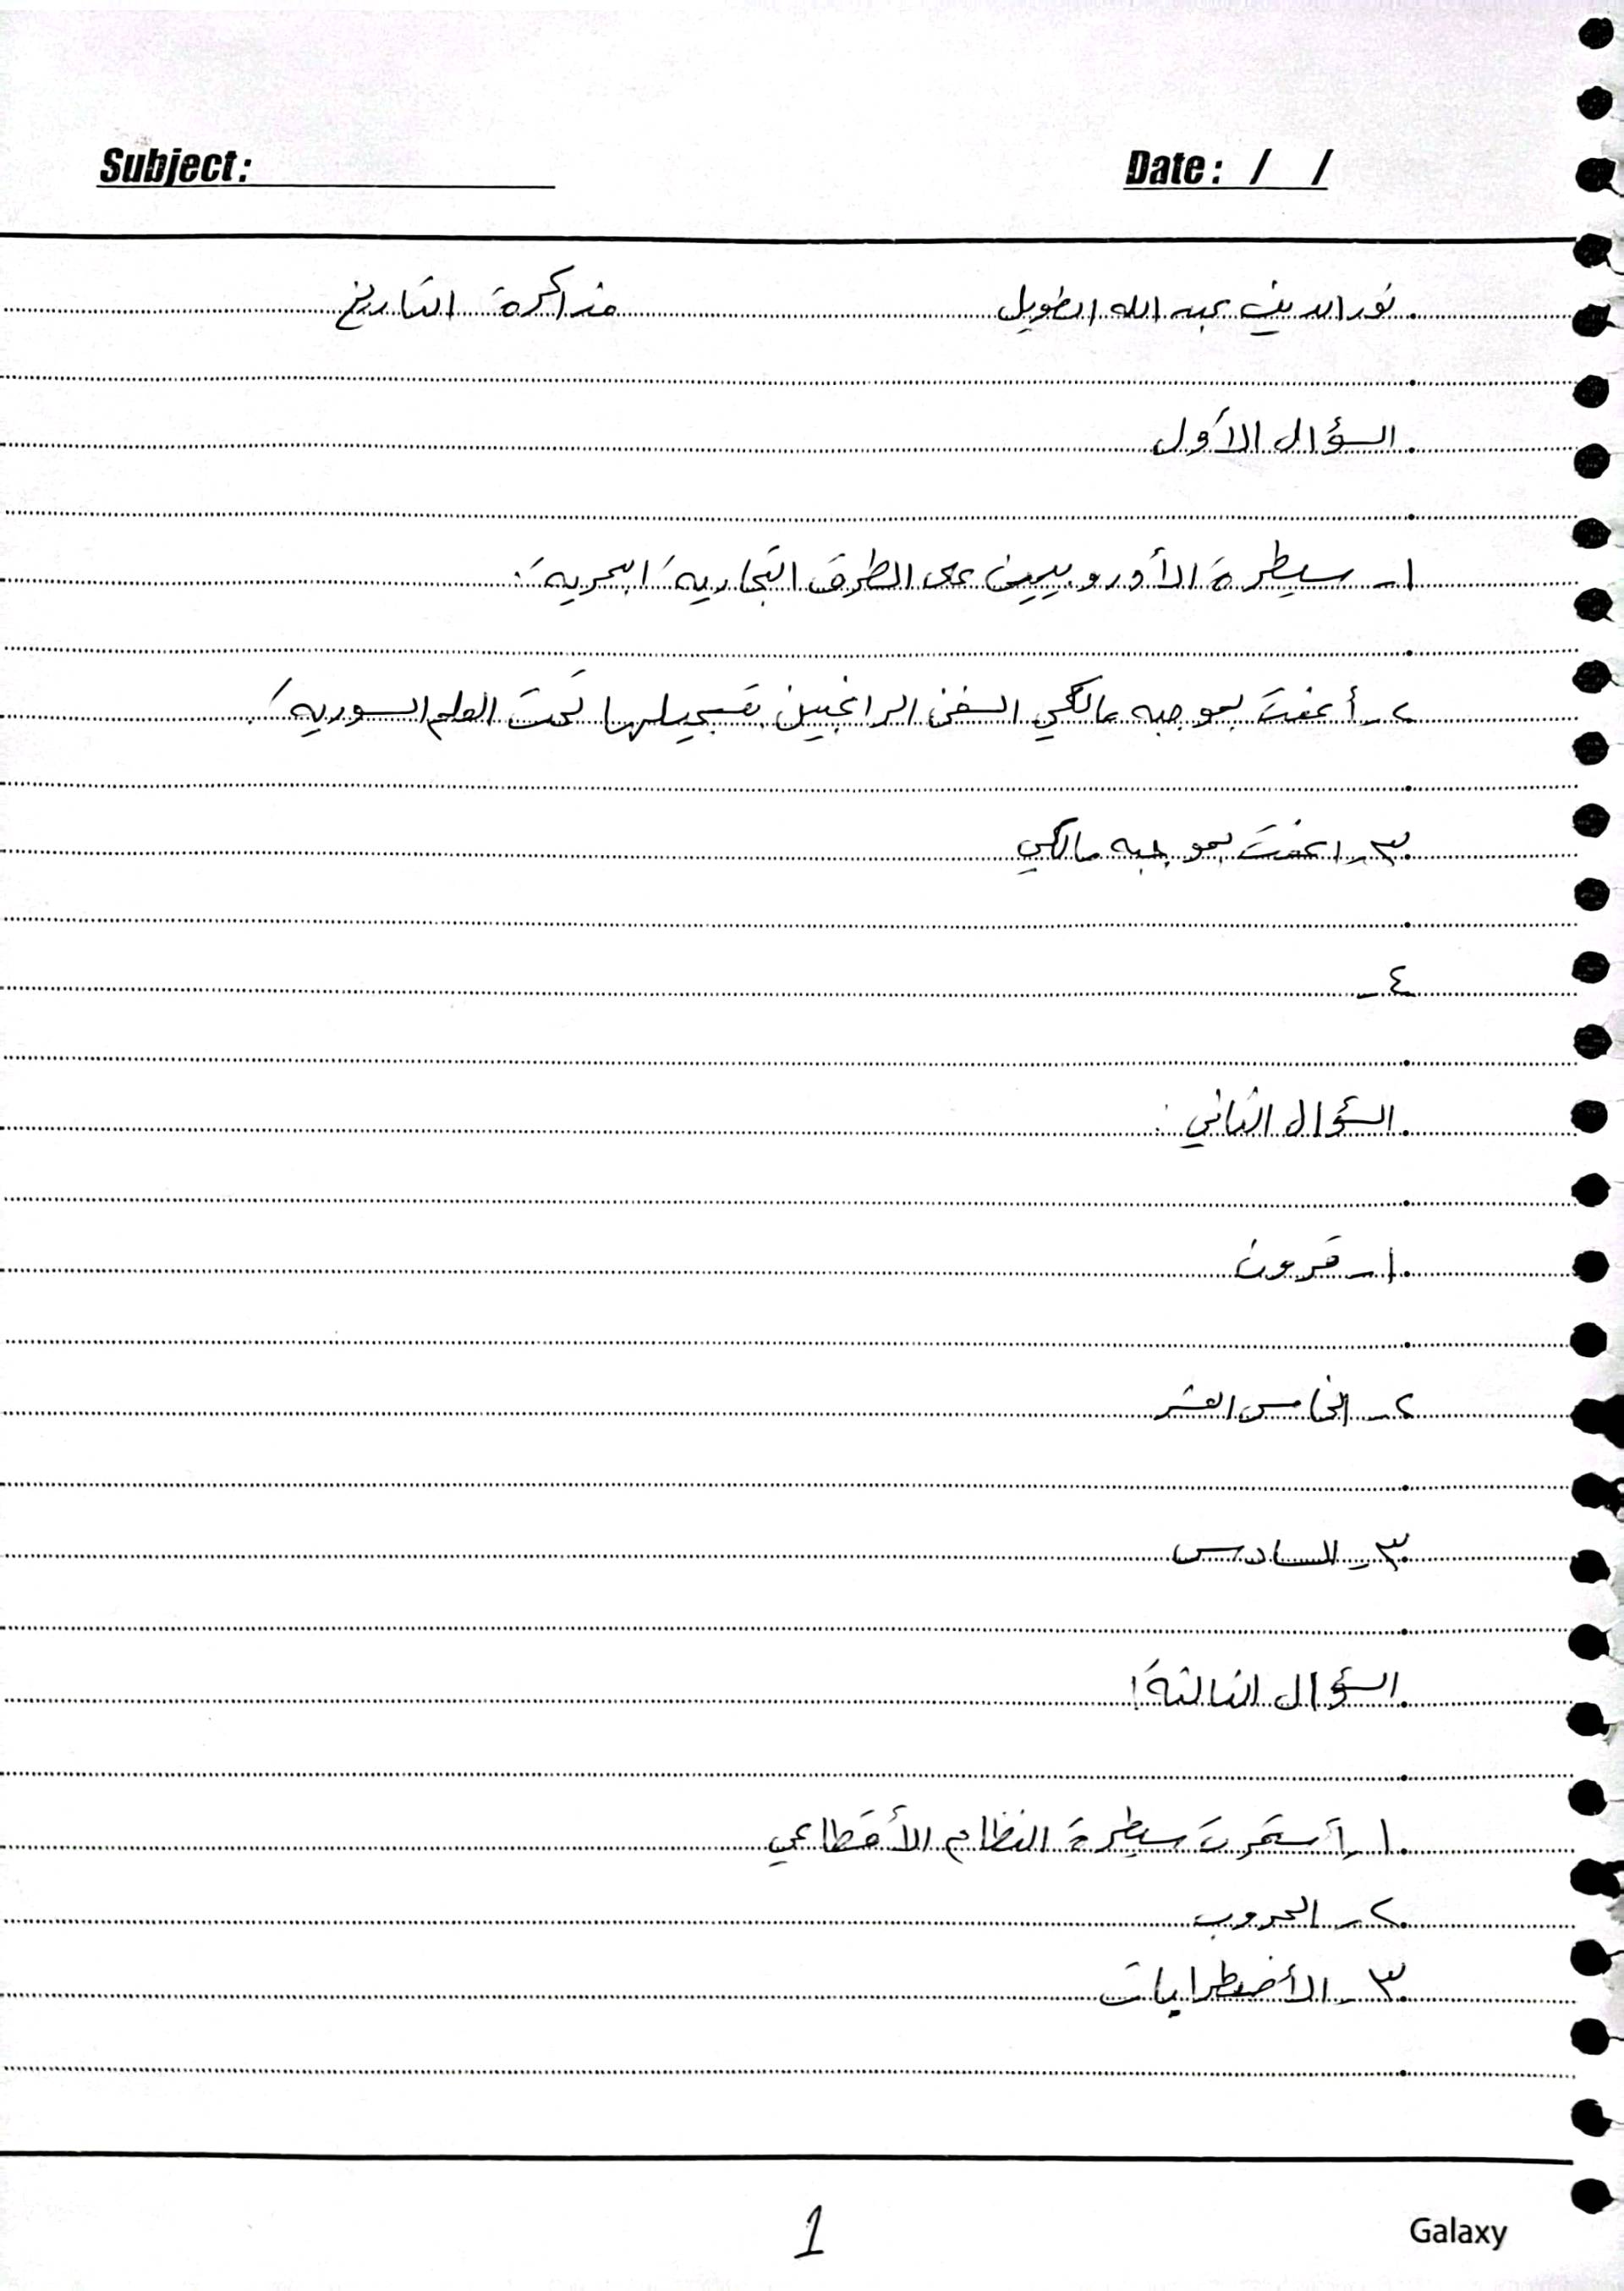 Subject:
Date: / /
نور الدين عبد الله الطويل مذاكرة التاريخ
السؤال الأول
١- سيطرة الأوروبيين على الطرق التجارية البحرية:
٢- أعفت بموجبه مالكي السفن الراغبين بتسجيلها تحت العلم السورية.
٣- اعفت بموجبه مالكي
٤-
السؤال الثاني:
١- قرون
٢- الخامس العشر
٣- السادس
السؤال الثالثة:
١- أستمرت سيطرة النظام الأقطاعي
٢- الحروب
٣- الأضطرابات
1
Galaxy